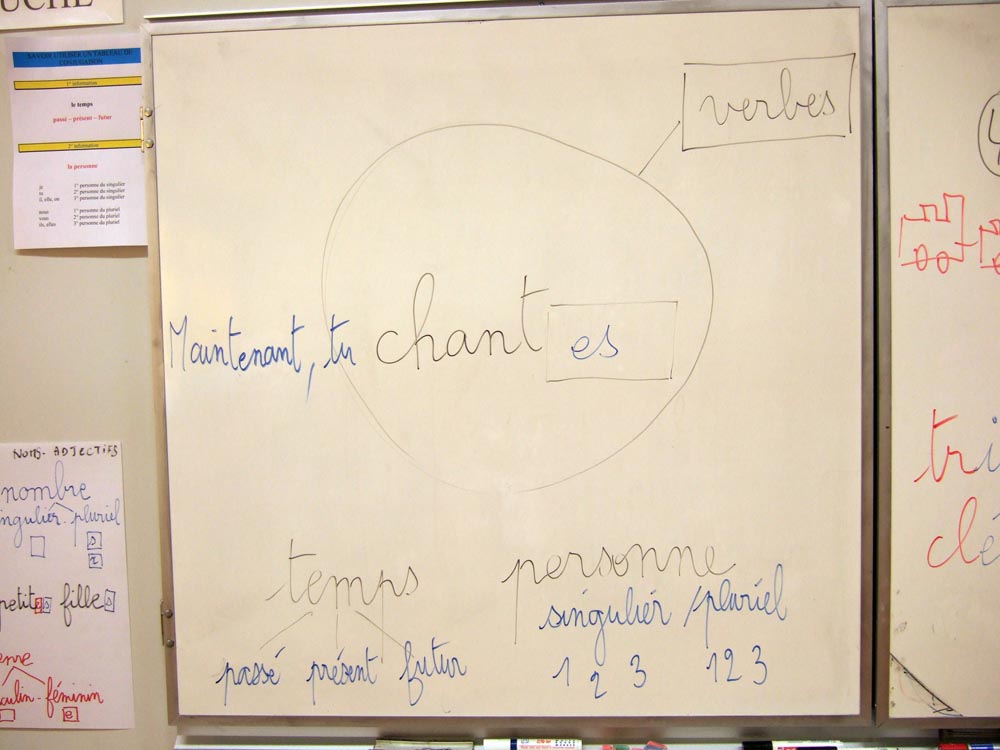 SAVOIR UTILISER UN TABLEAU DE
CONJUGAISON
1° information
le temps
passé – présent – futur
2° information
la personne
je 1° personne du singulier
tu 2° personne du singulier
il, elle, on 3° personne du singulier
nous 1° personne du pluriel
vous 2° personne du pluriel
ils, elles 3° personne du pluriel
NOMS - ADJECTIFS
nombre
pluriel
s
x
petites filles
féminin
e
verbes
Maintenant, tu chantes
temps
passé présent futur
personne
singulier / pluriel
1 2 3 1 2 3